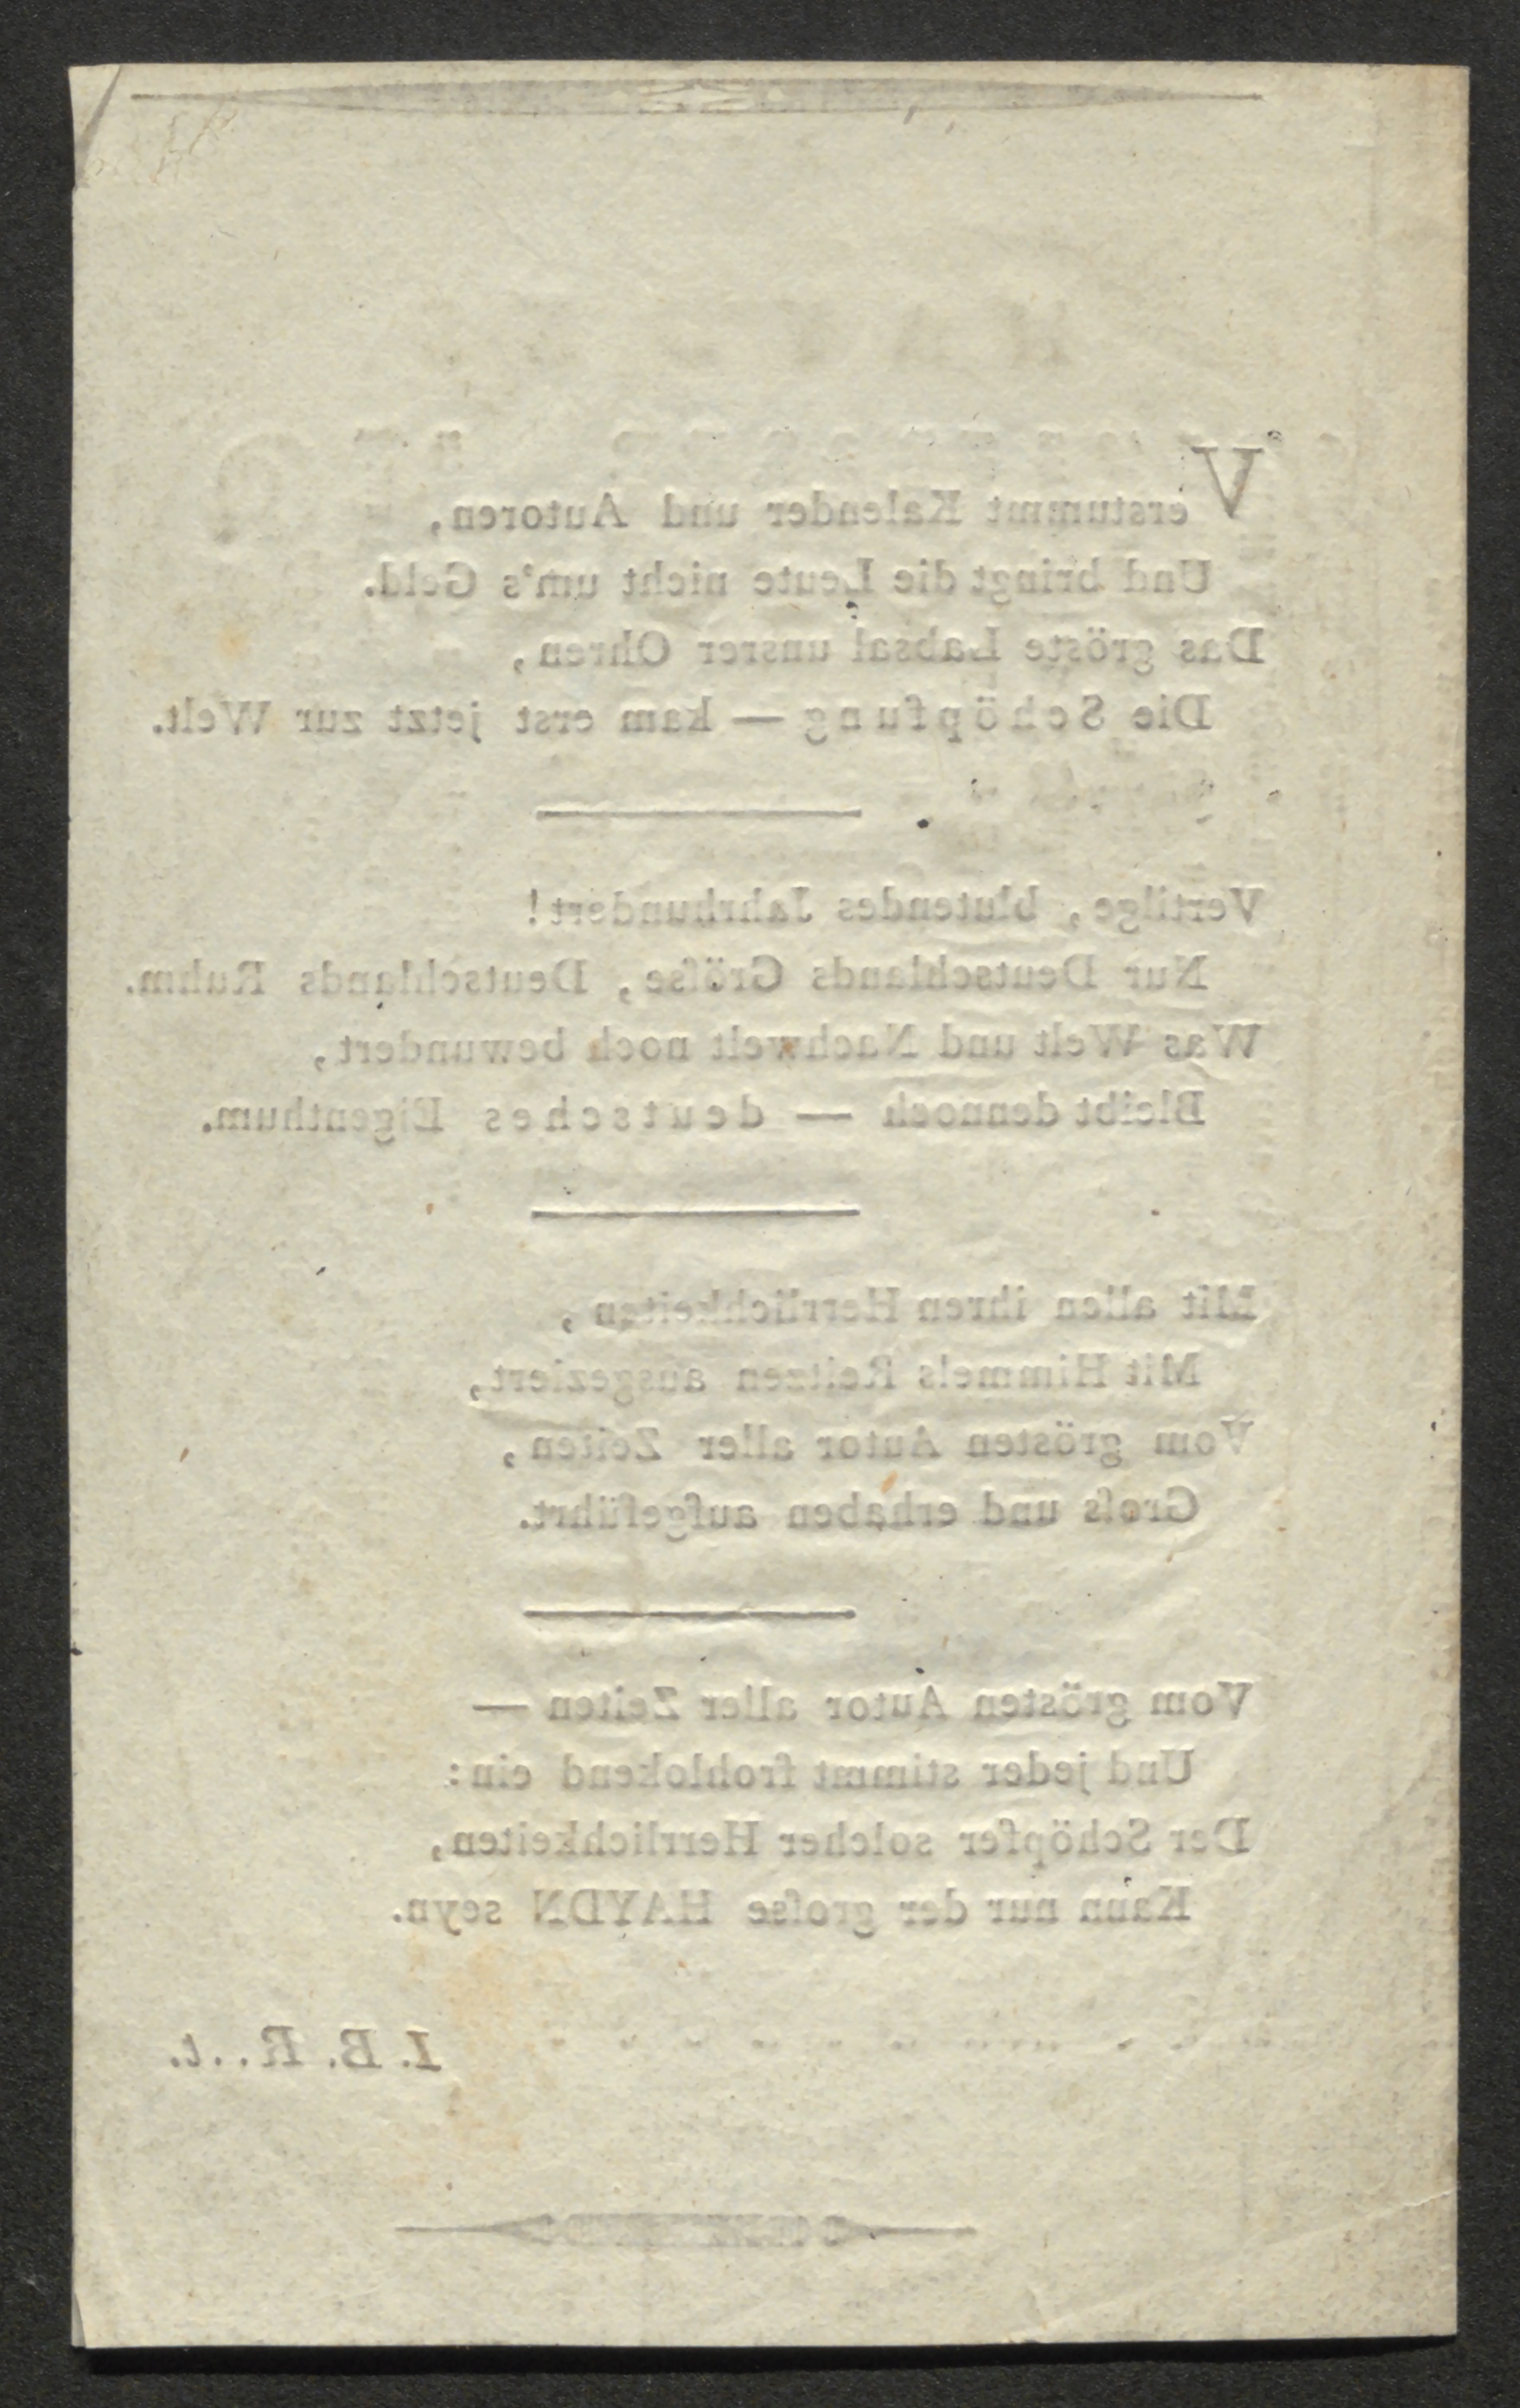 Verstummt Kalender und Autoren,
Und bringt die Leute nicht um's Geld.
Das gröste Labsal unsrer Ohren,
Die Schöpfung — kam erst jetzt zur Welt.
Vertilge, blutendes Jahrhundert!
Nur Deutschlands Gröſse, Deutschlands Ruhm.
Was Welt und Nachwelt noch bewundert,
Bleibt dennoch — deutsches Eigenthum.
Mit allen ihren Herrlichkeiten,
Mit Himmels Reitzen ausgeziert,
Vom grösten Autor aller Zeiten,
Groſs und erhaben aufgeführt.
Vom grösten Autor aller Zeiten —
Und jeder stimmt frohlokend ein:
Der Schöpfer solcher Herrlichkeiten,
Kann nur der groſse HAYDN seyn.
I. B. R...t.